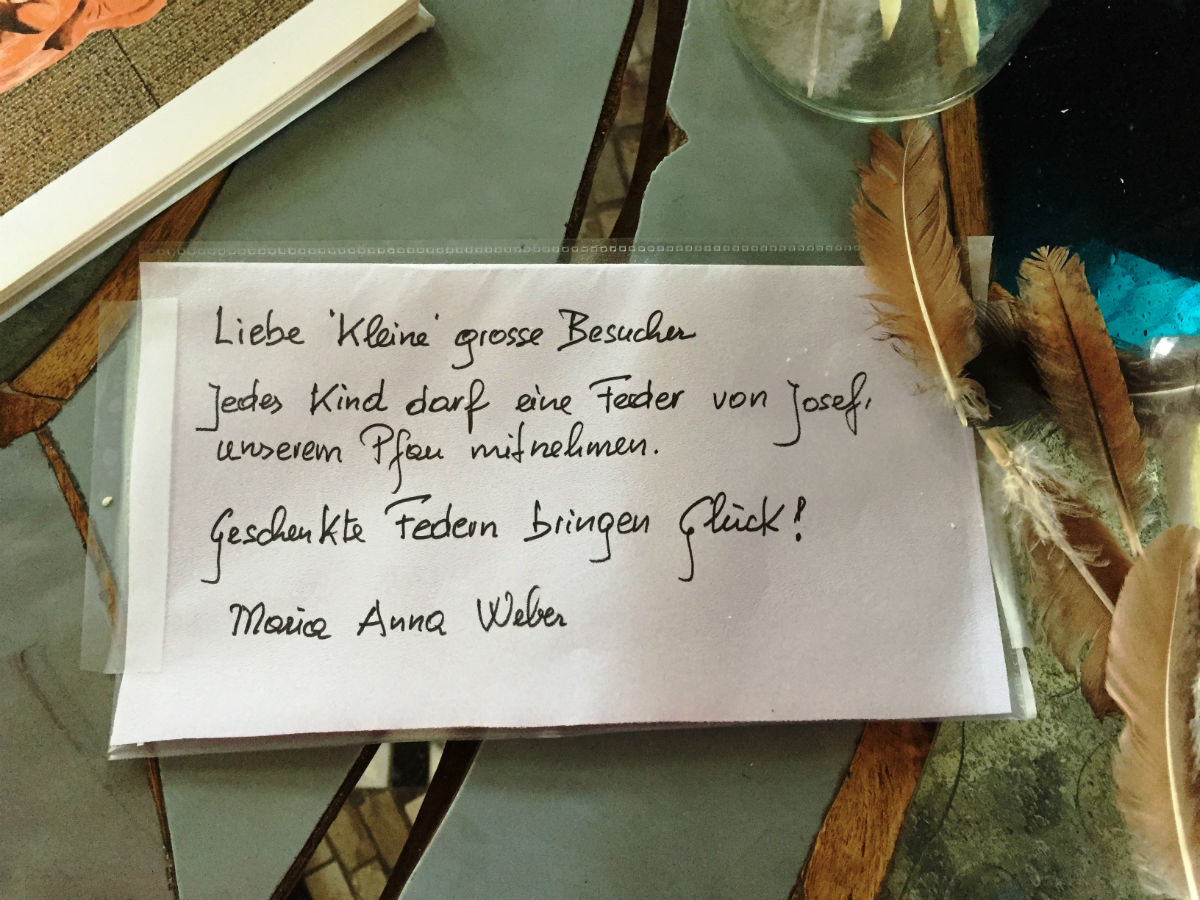 Liebe 'Kleine' grosse Besucher
Jedes Kind darf eine Feder von Josef,
unserem Pfau mitnehmen.
Geschenkte Federn bringen Glück!
Maria Anna Weber